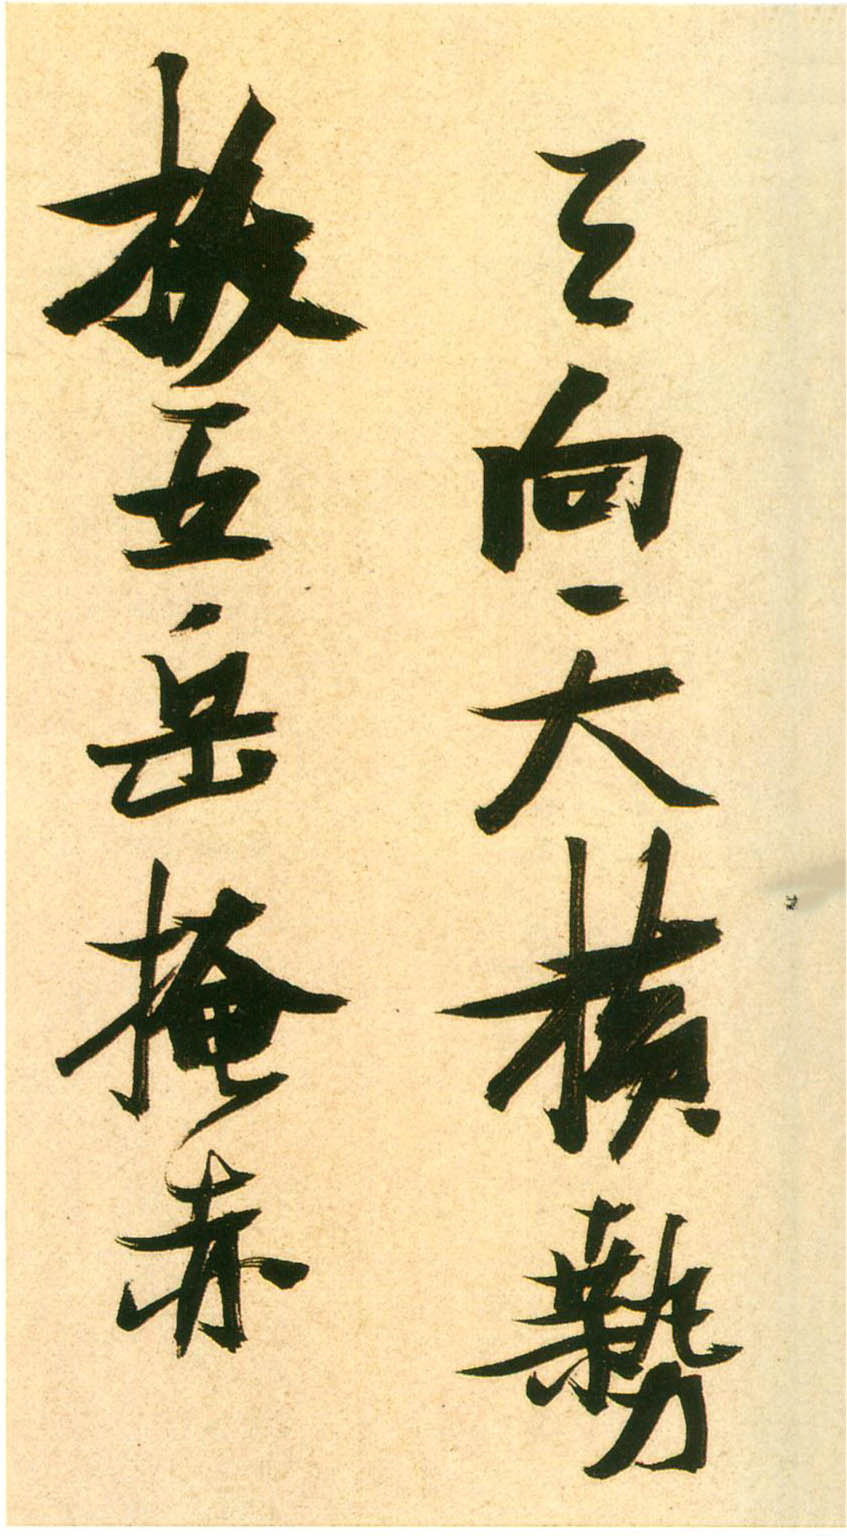 天向天橫勢
拔五岳掩赤